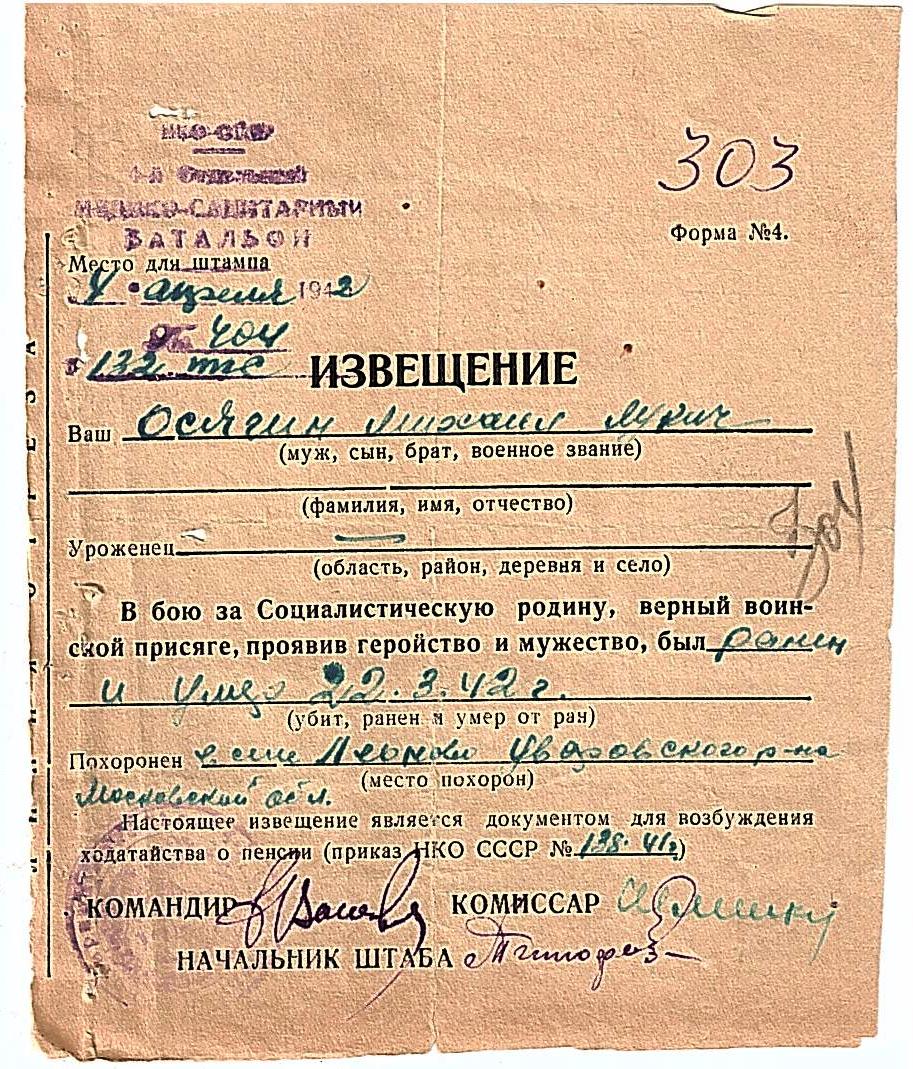 НКО-СССР
303
МЕДИКО-САНИТАРНЫЙ
БАТАЛЬОН
Форма №4.
Место для штампа
апреля 1942
№ 404
132
ИЗВЕЩЕНИЕ
Ваш Осягин Михаил Лукич
(муж, сын, брат, военное звание)
(фамилия, имя, отчество)
304
Уроженец —
(область, район, деревня и село)
В бою за Социалистическую родину, верный воин-
ской присяге, проявив геройство и мужество, был ранен
и умер 22.3.42 г.
(убит, ранен и умер от ран)
Похоронен Уваровского р-на
(место похорон)
Московской обл.
Настоящее извещение является документом для возбуждения
ходатайства о пенсии (приказ НКО СССР № 138-41г)
КОМАНДИР КОМИССАР
НАЧАЛЬНИК ШТАБА